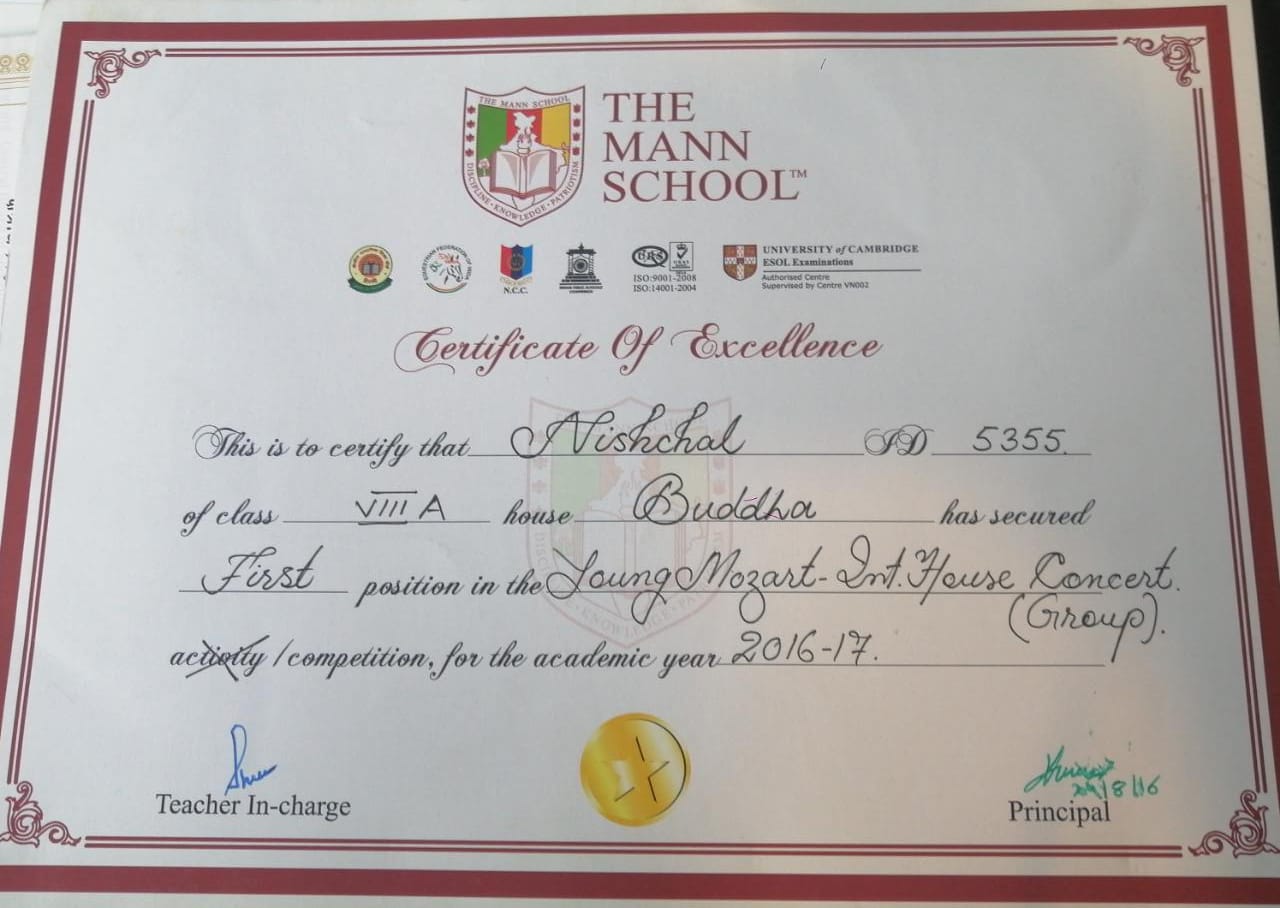 THE MANN SCHOOL
DISCIPLINE · KNOWLEDGE · PATRIOTISM
THE
MANN
SCHOOL™
EQUESTRIAN FEDERATION OF INDIA
N.C.C.
ISO:9001-2008
ISO:14001-2004
UNIVERSITY of CAMBRIDGE
ESOL Examinations
Authorised Centre
Supervised by Centre VN002
Certificate Of Excellence
This is to certify that Nishchal ID 5355.
of class VIII A house Buddha has secured
First position in the Young Mozart-Int. House Concert.
(Group).
activity /competition, for the academic year 2016-17.
Teacher In-charge
Principal